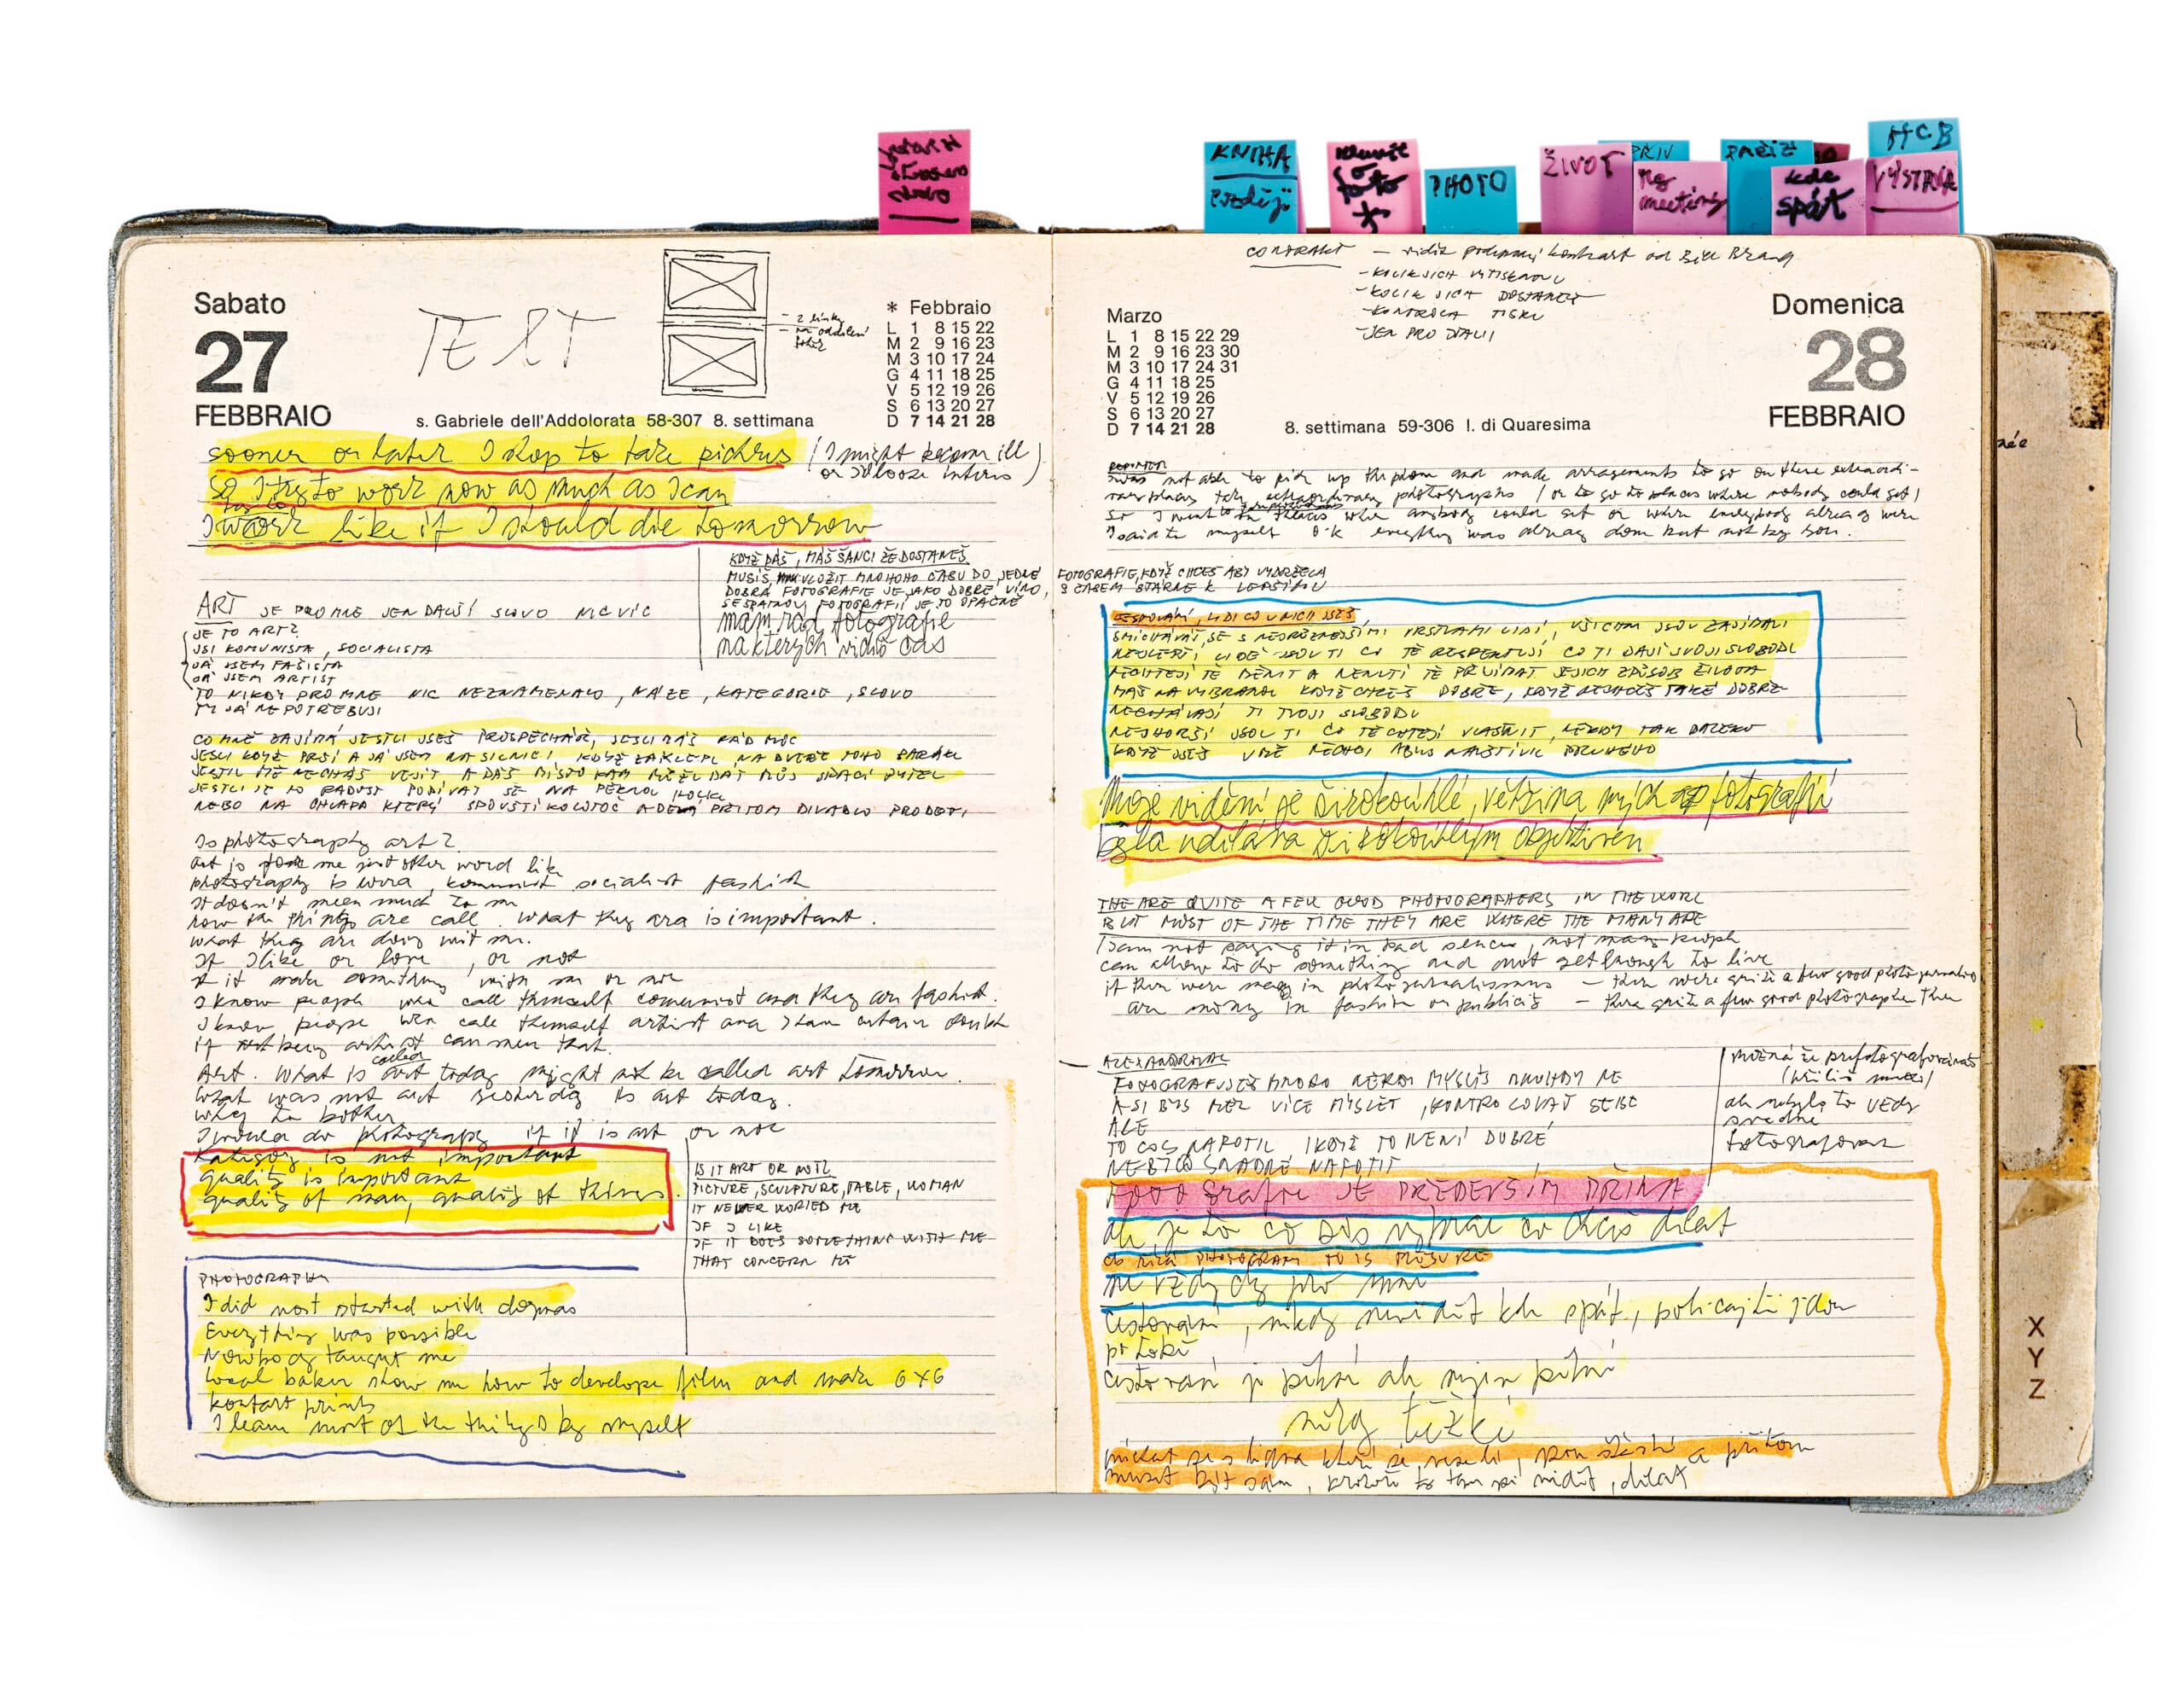 KNIHA
PHOTO
ŽIVOT
PRIV
PAŘÍŽ
HCB
meeting
kde
spát
VÝSTAVA
Sabato
27
FEBBRAIO
TEXT
- 2 linky
s. Gabriele dell'Addolorata 58-307 8. settimana
* Febbraio
L 1 8 15 22
M 2 9 16 23
M 3 10 17 24
G 4 11 18 25
V 5 12 19 26
S 6 13 20 27
D 7 14 21 28
sooner or later I stop to take pictures (I might become ill)
or I looze interes
so I try to work now as much as I can
I try to work like if I should die tomorrow
KDYŽ DÁŠ, MÁŠ ŠANCI ŽE DOSTANEŠ
MUSÍŠ VLOŽIT MNOHO ČASU DO JEDNÉ
DOBRÁ FOTOGRAFIE JE JAKO DOBRÉ VÍNO,
SE ŠPATNOU FOTOGRAFIÍ JE TO OPAČNĚ
mám rád fotografie
na kterých vidím čas
ART JE PRO MNE JEN DALŠÍ SLOVO NIC VÍC
JE TO ART?
JSI KOMUNISTA, SOCIALISTA
JÁ JSEM FAŠISTA
JÁ JSEM ARTIST
TO NIKDY PRO MNE NIC NEZNAMENALO, KATEGORIE, SLOVO
TY JÁ NEPOTŘEBUJI
CO MNĚ ZAJÍMÁ JESTLI JSEŠ PROSPĚCHÁŘ, JESLI MÁŠ RÁD MOC
JESLI KDYŽ PRŠÍ A JÁ JSEM NA SILNICI, KDYŽ ZAKLEPU NA DVEŘE TOHO BARÁKU
JESTLI MĚ NECHÁŠ VEJÍT A DÁŠ MÍSTO KAM MŮŽU DÁT MŮJ SPACÍ PYTEL
JESTLI JE TO RADOST PODÍVAT SE NA PĚKNOU HOLKU
NEBO NA CHLAPA KTERÝ SPOUŠTÍ KOLOTOČ A DĚLÁ PŘITOM DIVADLO PRO DĚTI
Is photography art?
art is for me just other word like
photography is word, komunist socialist fashist
It doesn't meen much to me
how the things are call. what they are is important.
what they are doing wit me.
If I like or love, or not
If it make something with me or not
I know people who call themself comunist and they are fashist.
I know people who call themself artist and I have certain doubt
if being artist can men that.
Art. What is called art today might not be called art tomorrow.
What was not art yesterday is art today.
why to bother
I would do photography if it is art or not
Kategory is not important
quality is important
quality of man, quality of things.
IS IT ART OR NOT?
PICTURE, SCULPTURE, TABLE, WOMAN
IT NEWER WORIED ME
IF I LIKE
IF IT DOES SOMETHING WITH ME
THAT CONCERN ME
PHOTOGRAPHY
I did not started with dogmas
Everything was possible
Nowbody taught me
local baker show me how to develope film and make 6x6
kontact prints
I learn most of the things by myself
CONTRAKT - vidět podepsaný kontrakt od Bill Brand
- KOLIK JICH VYTISKNOU
- KOLIK JICH DOSTANEŠ
- KONTROLA TISKU
- JEN PRO
Marzo
L 1 8 15 22 29
M 2 9 16 23 30
M 3 10 17 24 31
G 4 11 18 25
V 5 12 19 26
S 6 13 20 27
D 7 14 21 28
8. settimana 59-306 I. di Quaresima
Domenica
28
FEBBRAIO
I was not able to pick up the phone and made arragements to go on these extraordi-
nary places take extraordinary photographs (or to go to places where nobody could get)
So I went to the places where anybody could get or where everybody already were
I said to myself O.K everything was already done but not by you.
FOTOGRAFIE, KDYŽ CHCEŠ ABY VYDRŽELA
S ČASEM STÁRNE K LEPŠÍMU
CESTOVÁNÍ, LIDI CO V NICH JSEŠ
SMÍCHÁVAT SE S NEJRŮZNĚJŠÍMI VRSTVAMI LIDÍ, VŠICHNI JSOU ZAJÍMAVÍ
NEJLEPŠÍ LIDÉ JSOU TI CO TĚ RESPEKTUJÍ CO TI DAJÍ SVOJI SVOBODU
NECHTĚJÍ TĚ MĚNIT A NENUTÍ TĚ PŘIJÍMAT JEJICH ZPŮSOB ŽIVOTA
MÁŠ NA VYBRANOU KDYŽ CHCEŠ DOBRE, KDYŽ NECHCEŠ TAKÉ DOBRE
NECHÁVAJÍ TI TVOJI SVOBODU
NEJHORŠÍ JSOU TI CO TĚ CHTĚJÍ VLASTNIT, NĚKDY TAK DALEKO
KDYŽ JSEŠ U NĚ NECHCI ABYS NAVŠTÍVIL DRUHÉHO
Moje vidění je širokoúhlé, většina mých fotografií
byla udělána širokoúhlým objektivem
THE ARE QUITE A FEW GOOD PHOTOGRAPHERS IN THE WORL
BUT MOST OF THE TIME THEY ARE WHERE THE MANY ARE
I am not saying it in bad sence, not many people
can allow to do something and not get enough to live
if there were many in photojurnalismus - there were quite a few good photojurnalist
are mony in fashion or publicity - there quite a few good photographer there
FOTOGRAFUJEŠ MNOHO NĚKDY MYSLÍŠ MNOHDY NE
ASI BYS MĚL VÍCE MYSLET, KONTROLOVAT SEBE
ALE
TO COS NAFOTIL I KDYŽ TO NENÍ DOBRÉ
NEBYLO SNADNÉ NAFOTIT
možná že přefotografovávaš
ale nebylo to vždy
snadné
fotografovat
FOTOGRAFIE JE PŘEDEVŠÍM DŘINA
ale je to co sis vybral co chceš dělat
ne vždycky pro mne
cestování, někdy nevidět kde spát, policajti jdou
po tobě,
cestování je pěkné ale nejen pěkné
někdy těžké
míchat se s lidma kteří se veselí, jsou šťastní a přitom
muset být sám, kvůli to tam vidět, dělat
X
Y
Z